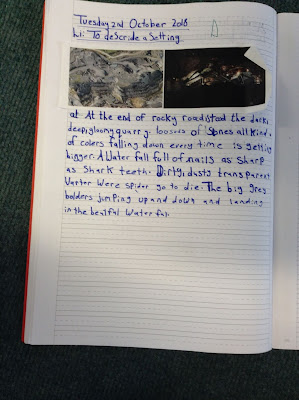 Tuesday 2nd October 2018
L.I: To describe a setting.
at At the end of rocky road stood the dark,
deep, gloomy quarry. loosds of Spnes all Kind
of colers falling down every time is getting
bigger. A Water fall full of nails as sharp
as Shark teeth. Dirty, dusty transparent
Varter Were spider go to die. The big grey
bolders jimping up and down and landing
in the beatful Water fall.